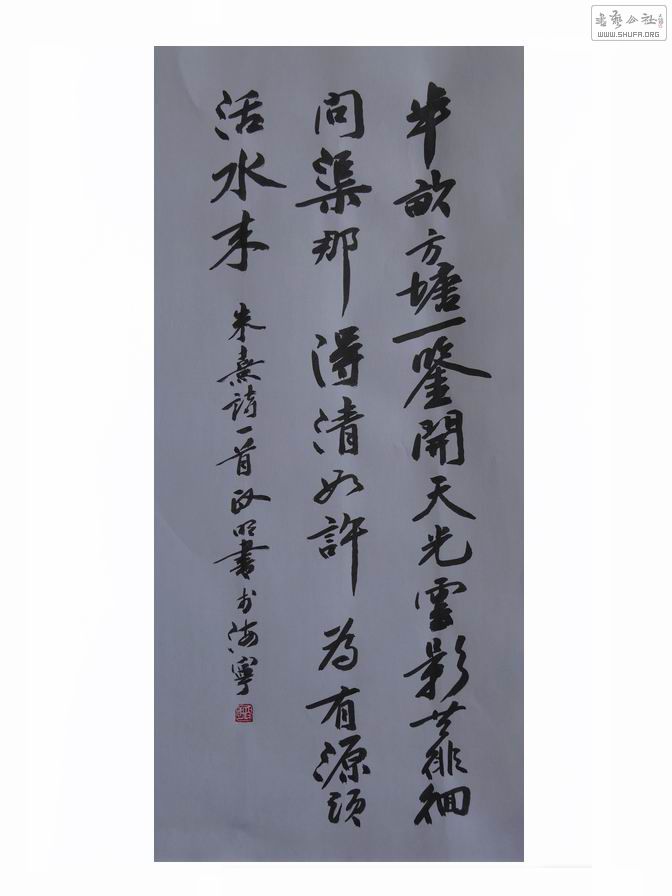 半畝方塘一鑒開天光雲影共徘徊
問渠那得清如許為有源頭
活水来
朱熹詩一首政明書於海寧
書藝公社
WWW.SHUFA.ORG